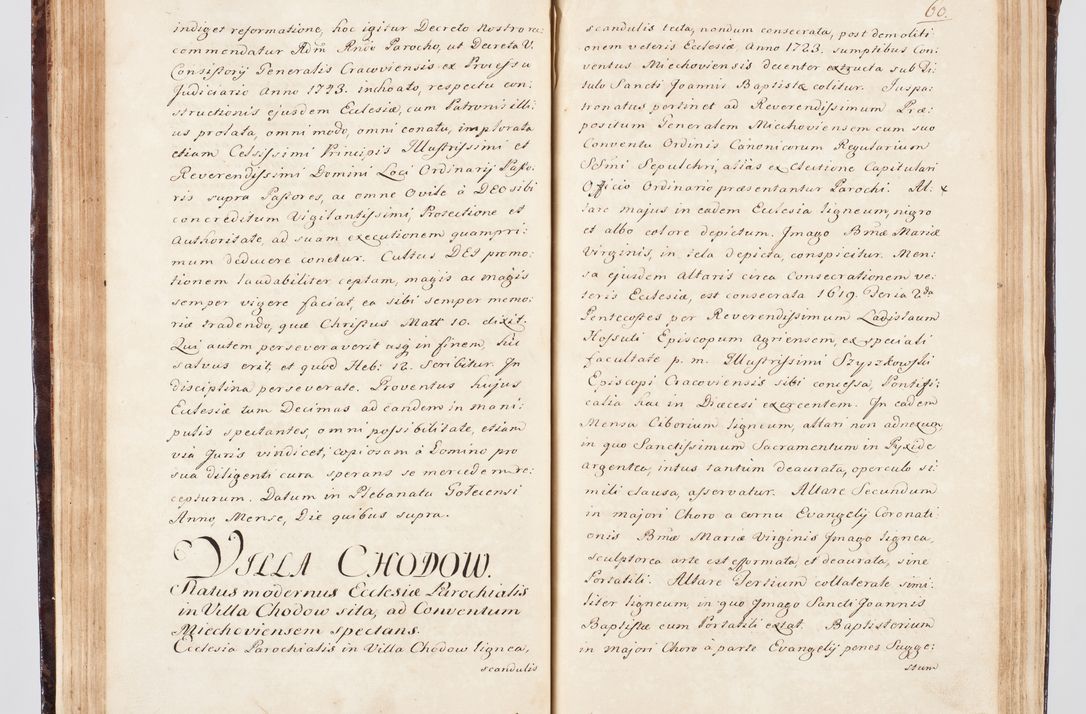 indiget reformatione, hoc igitur Decreto Nostro re:
commendatur Adm Rndo Parocho, ut Decreta V.
Consistorij Generalis Cracoviensis ex Processu
Judiciario Anno 1743. inchoato, respectu con:
structionis ejusdem Ecclesiæ, cum Patronis illi:
us prolata, omni modo, omni conatu, implorata
etiam Celsissimi Principis Illustrissimi et
Reverendissimi Domini Loci Ordinarij Pasto:
ris supra Pastores, ac omne Ovile à DEO sibi
concreditum Vigilantissimi, Protectione et
Authoritate, ad suam executionem quampri:
mum deducere conetur. Cultus DEI promo:
tionem laudabiliter ceptam, magis ac magis
semper vigere faciat, ea sibi semper memo:
riæ tradendo, quæ Christus Matt 10. dixit.
Qui autem perseveraverit usq; in finem, hic
salvus erit, et quod Heb: 12. scribitur. In
disciplina perseverate. Proventus hujus
Ecclesiæ tum Decimas ad eandem in mani:
pulis spectantes, omni possibilitate, etiam
via Juris vindicet, copiosam à Domino pro
sua diligenti cura sperans se mercedem re:
cepturum. Datum in Plebanatu Gołecensi
Anno, Mense, Die quibus supra.
VILLA CHODOW.
Status modernus Ecclesiæ Parochialis
in Villa Chodow sita, ad Conventum
Miechoviensem spectans.
Ecclesia Parochialis in Villa Chodow lignea,
scandulis
60.
scandulis tecta, nondum consecrata, post demoliti
onem veteris Ecclesiæ Anno 1723. sumptibus Con:
ventus Miechoviensis decenter extructa sub Ti:
tulo Sancti Joannis Baptistæ colitur. Juspa:
tronatus pertinet ad Reverendissimum Præ:
positum Generalem Miechoviensem cum suo
Conventu Ordinis Canonicorum Regularium
SSmi Sepulchri, aliàs ex electione Capitulari
Officio Ordinario præsentantur Parochi. Al:
tare majus in eadem Ecclesia ligneum, nigro
et albo colore depictum. Imago Bmæ Mariæ
Virginis, in tela depicta, conspicitur. Men:
sa ejusdem Altaris circa Consecrationem ve:
teris Ecclesiæ, est consecrata 1619. Feria 2da
Pentecostes per Reverendissimum Ladislaum
Hossuti Episcopum Agriensem, ex speciali
facultate p. m. Illustrissimi Szyszkowski
Episcopi Cracoviensis sibi concessa, Pontifi:
calia hac in Diæcesi exercentem. In eadem
Mensa Ciborium ligneum, altari non adnexum,
in quo Sanctissimum Sacramentum in Pyxide
argentea, intus tantùm deaurata, operculo si
mili clausa, asservatur. Altare Secundum
in majori Choro a cornu Evangelij Coronati
onis Bmæ Mariæ Virginis Imago lignea,
sculptorea arte est efformata, et deaurata, sine
Portatili. Altare Tertium collaterale simi:
liter ligneum, in quo Imago Sancti Joannis
Baptistæ cum Portatili extat. Baptisterium
in majori Choro a parte Evangelij penes Sugge:
stum